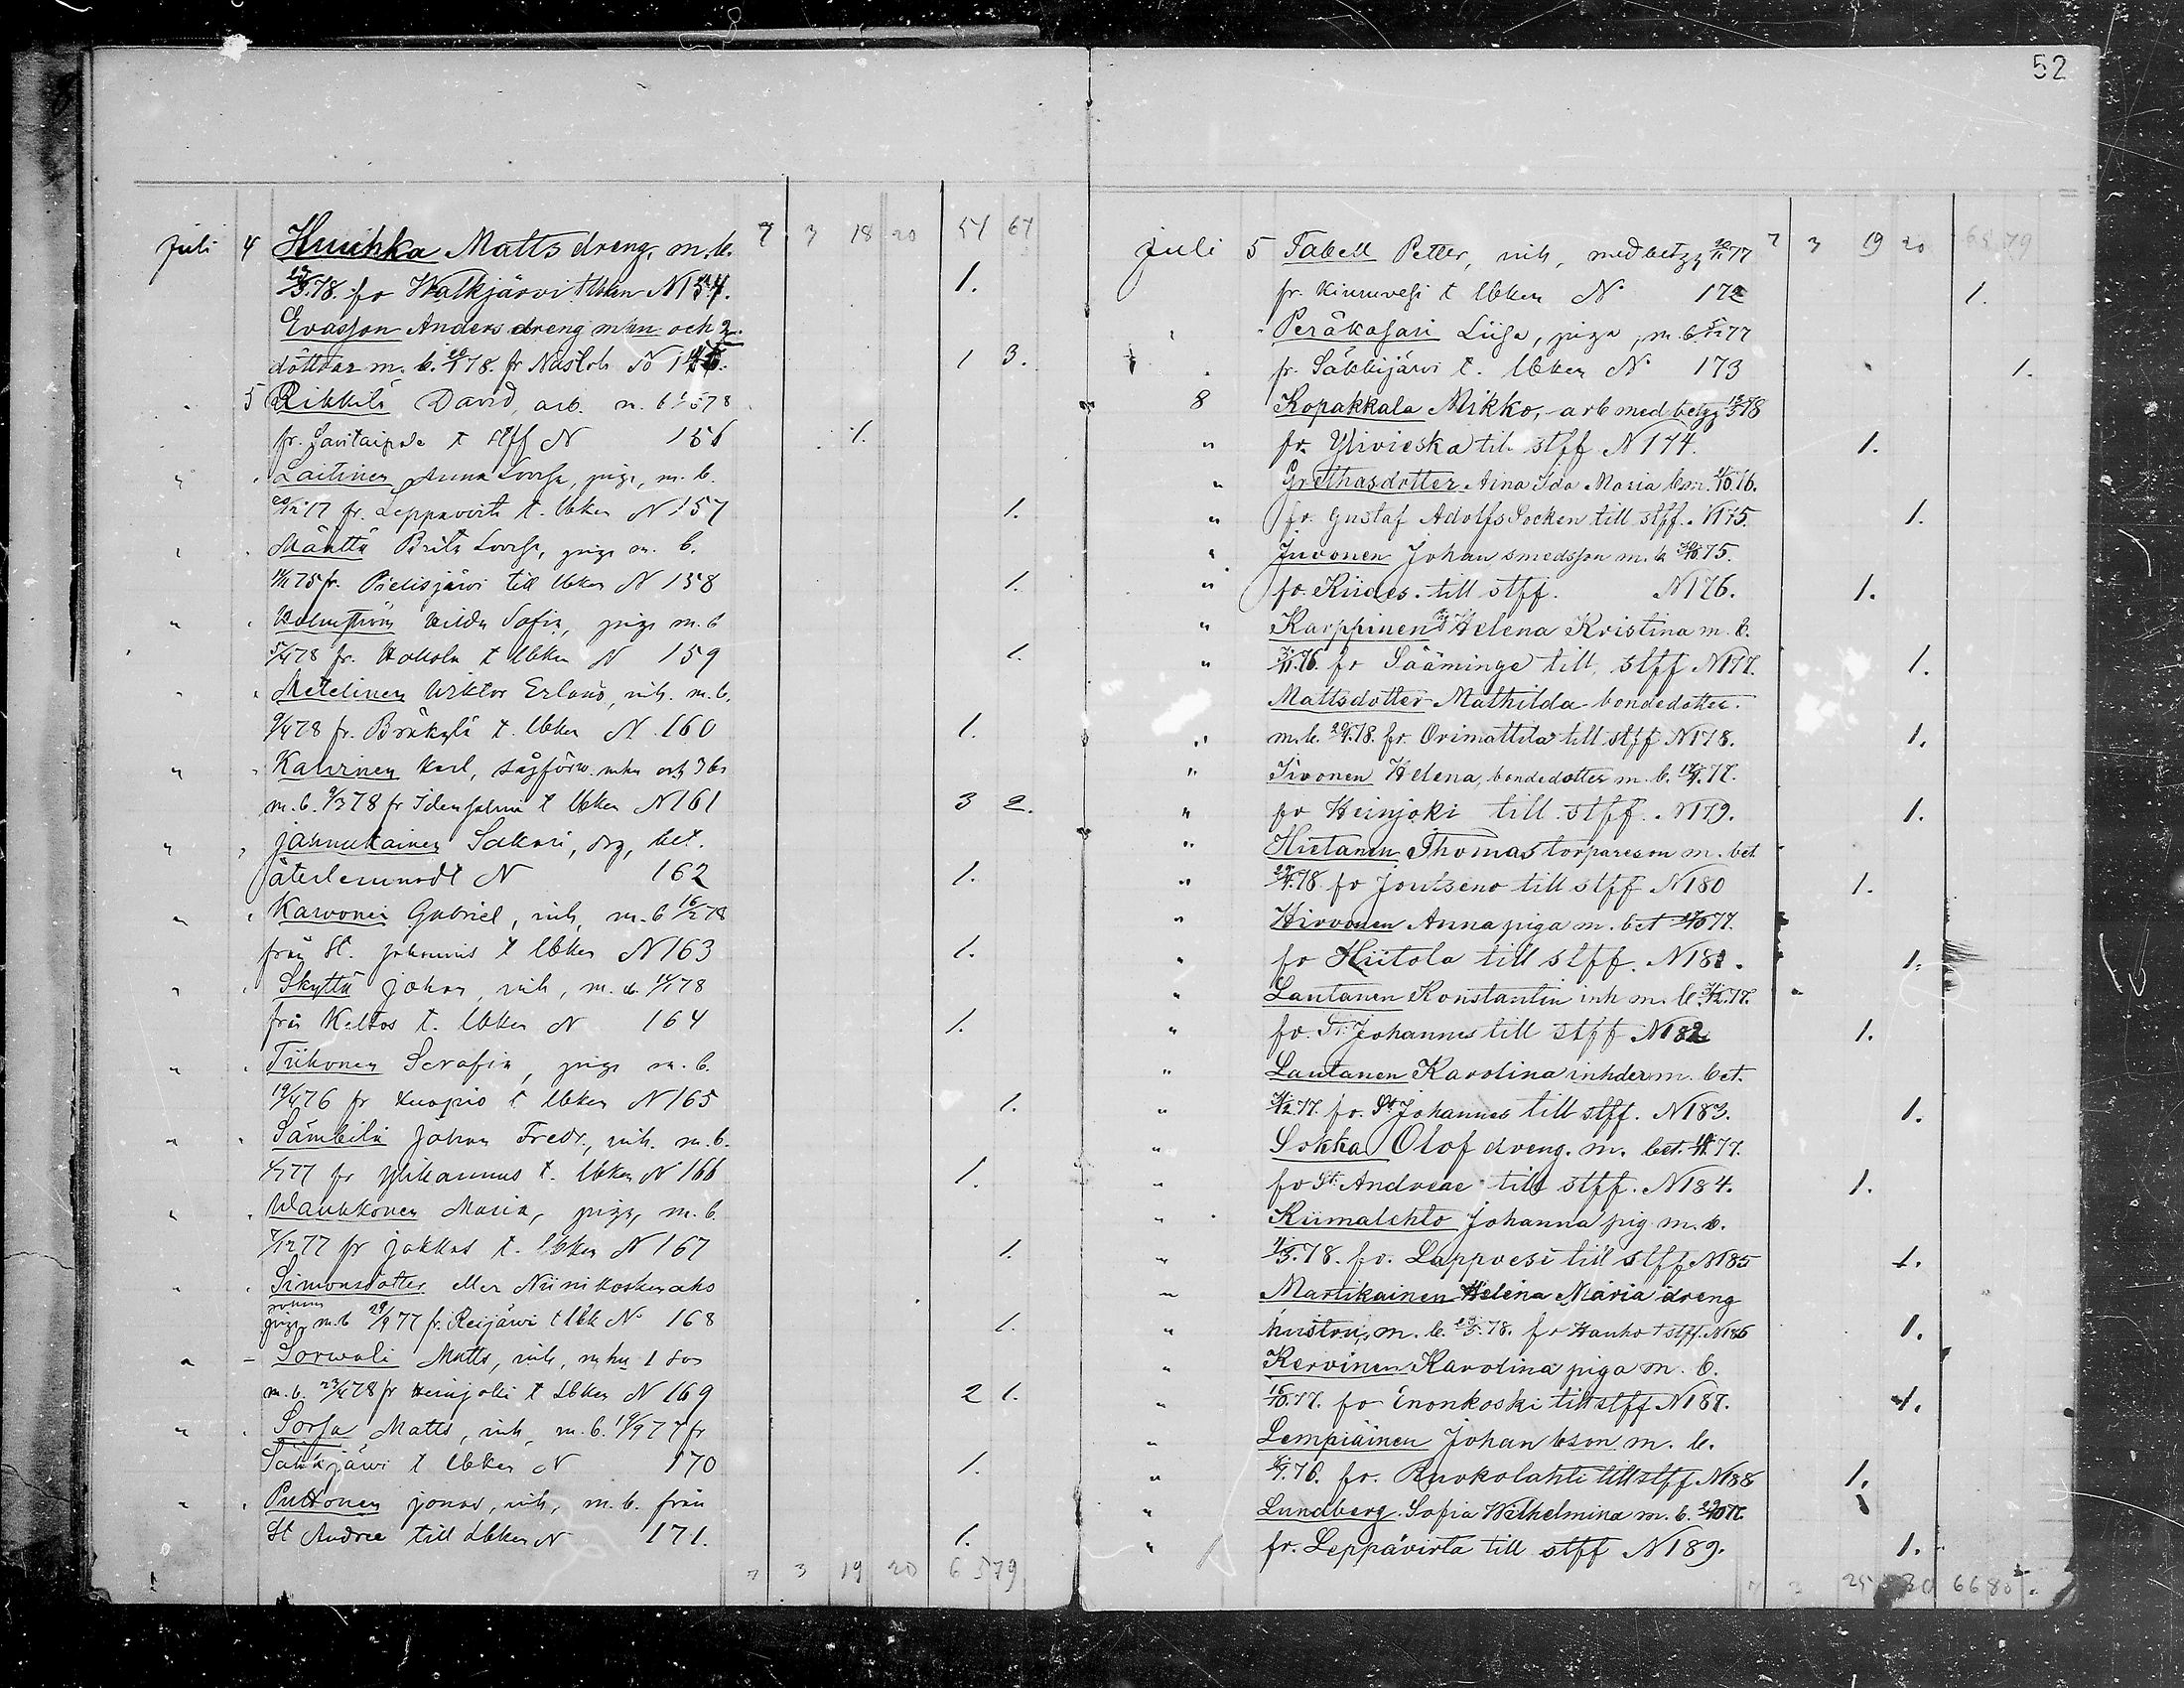 52
7 3 18 20 51 67
Juli 4 Huuhka Matts dreng, m. b.
19/5.78. fr Walkjärvi t Uken N 154. 1.
Evasson Anders dreng mhu och 2
döttrar m. b. 78. fr Naslob No 1 3.
" 5 Rikkilä David, arb. m. b 78
fr. Savitaipale t stff N 156 1.
" " Laitinen Anna Lovisa, piga, m. b.
20/12 77 fr. Leppävirta t. Ubken N 157 1.
" " Mänttä Brita Lovisa, piga m. b.
75 fr. Pielisjärvi till Ubken N 158 1.
" " Holmström Hilda Sofia, piga m. b
5/4 78 fr. Kokola t Ubken N 159 1.
" " Metelinen Wiktor Erland, inh. m. b.
9/4 78 fr. Bräkylä t. Ubken N 160 1.
" " Kaurinen Karl, sågförw. mhu och 3 br
m. b. 9/3 78 fr Idensalmi t Ubken N 161 3 2.
" " Jannukainen Sakari, drg, bet.
återlemnadt N 162 1.
" " Karvonen Gabriel, inh, m. b 16/2 78
från St. Johannis t Ubken N 163 1.
" " Skyttä Johan, inh, m. b. 78
från Keltos t. Ubken N 164 1.
" " Tiihonen Serafia, piga m. b.
19/4 76 fr Kuopio t Ubken N 165 1.
" " Sämbilä Johan Fredr., inh. m. b.
77 fr Ylikannus t. Ubken N 166 1.
" " Waukkonen Maria, piga, m. b.
7/12 77 fr Jakkas t. Ubken N 167 1.
" " Simonsdotter eller Niinikoskenaho
piga m. b 29/9 77 fr. Reijärvi t Ubk No 168 1.
" " Sorwali Matts, inh, mhu 1 son
m. b. 23/4 78 fr Heinjoki t Ubken N 169 2 1.
" " Sorsa Matts, inh, m. b. 19/9 77 fr
Säkkijärvi t Ubken N 170 1.
" " Puttonen Jonas, inh, m. b. från
St Andree till Ubken N 171. 1.
7 3 19 20 65 79
7 3 19 20 65 79
Juli 5 Tabell Petter, inh, med betyg 77
fr. Kiuruvesi t Ubken No 172 1.
" " Peräkasari Liisa, piga, m. b. 77
" fr. Säkkijärvi t. Ubken No 173 1.
8 Kopakkala Mikko, arb med betyg 78
" fr. Ylivieska till stff N 174. 1.
" Grethasdotter Aina Ida Maria bm. 76.
" fr. Gustaf Adolfs Socken till stff. N 175. 1.
" Juvonen Johan smedsson m. b 75.
" fr. Kides till stff. N 176. 1.
" Karppinen pig Helena Kristina m. b.
" 76. fr Sääminge till stff N 177. 1.
Mattsdotter Mathilda bondedotter.
" m. b. 78. fr. Orimattila till stff N 178. 1.
" Sivonen Helena, bondedotter m. b. 77.
" fr Heinjoki till stff. N 179. 1.
" Hietanen Thomas torpareson m. bet
" 78 fr Joutseno till stff N 180 1.
" Hirvonen Anna piga m. bet 77.
" fr Hiitola till stff. N 181. 1.
" Lautanen Konstantin inh m. b. 77.
" fr. St. Johannes till stff N 182 1.
" Lautanen Karolina inhder m. bet.
" 77. fr. St Johannes till stff. N 183. 1.
" Sokka Olof dreng. m. bet. 77.
" fr St. Andreae till stff. N 184. 1.
" Kiimalehto Johanna pig m. b.
" 78. fr. Lappvesi till stff N 185 1.
" Martikainen Helena Maria dreng
" hustru, m. b. 78. fr Kauho t stff. N 186 1.
" Kervinen Karolina piga m. b.
" 77. fr Enonkoski till stff N 187. 1.
" Lempiäinen Johan bson m. b.
" 76. fr. Ruokolahti till stff N 188 1.
" Lundberg Sofia Wilhelmina m. b. 77.
" fr. Leppävirta till stff N 189. 1.
7 3 25 30 66 80